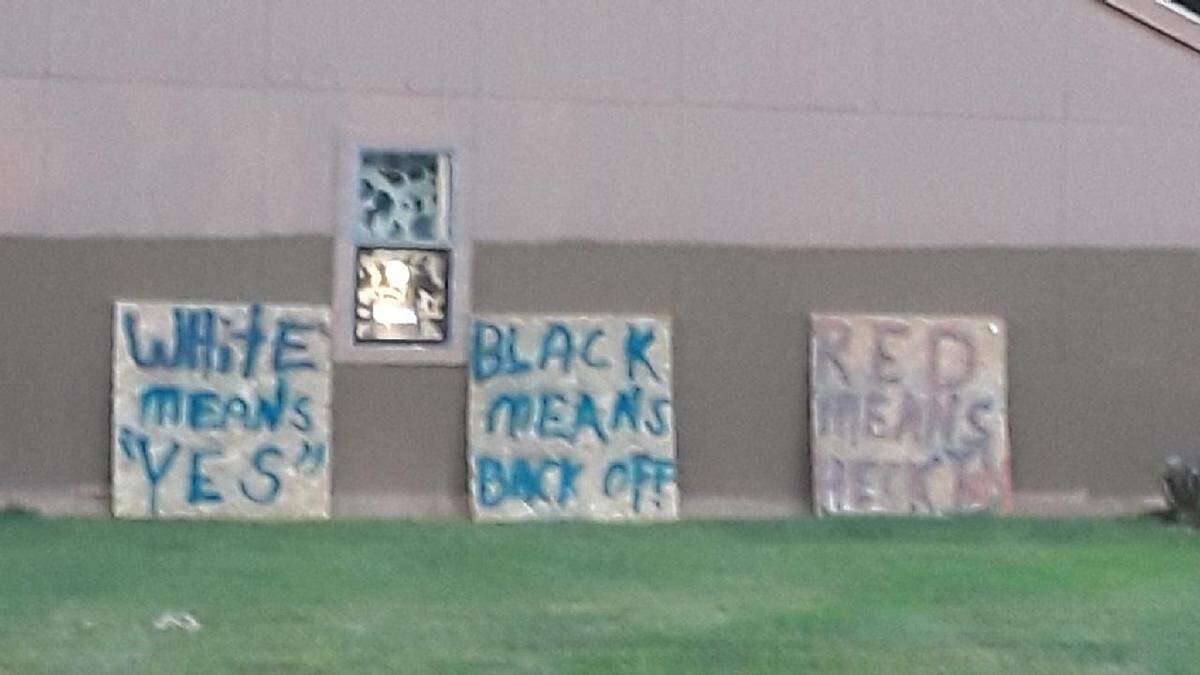 WHitE
MEANS
"YES"
BLACK
MEANS
BACK OFF
RED
MEANS